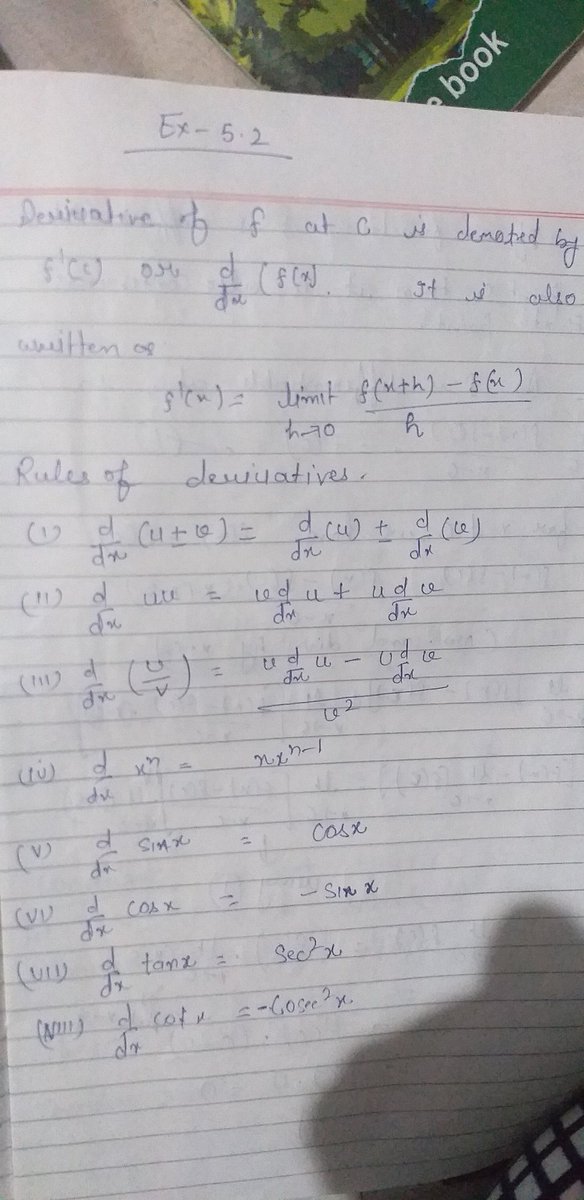 book
Ex - 5.2
Derivative of f at c is denoted by
f'(c) or d/dx (f(x). It is also
written as
f'(x) = limit h→0 f(x+h) - f(x) / h
Rules of derivatives.
(i) d/dx (u ± v) = d/dx (u) ± d/dx (v)
(ii) d/dx uv = v d/dx u + u d/dx v
(iii) d/dx (u/v) = v d/dx u - u d/dx v / v²
(iv) d/dx xⁿ = nxⁿ⁻¹
(v) d/dx sinx = cosx
(vi) d/dx cosx = - sin x
(vii) d/dx tanx = sec²x
(viii) d/dx cot x = - cosec²x